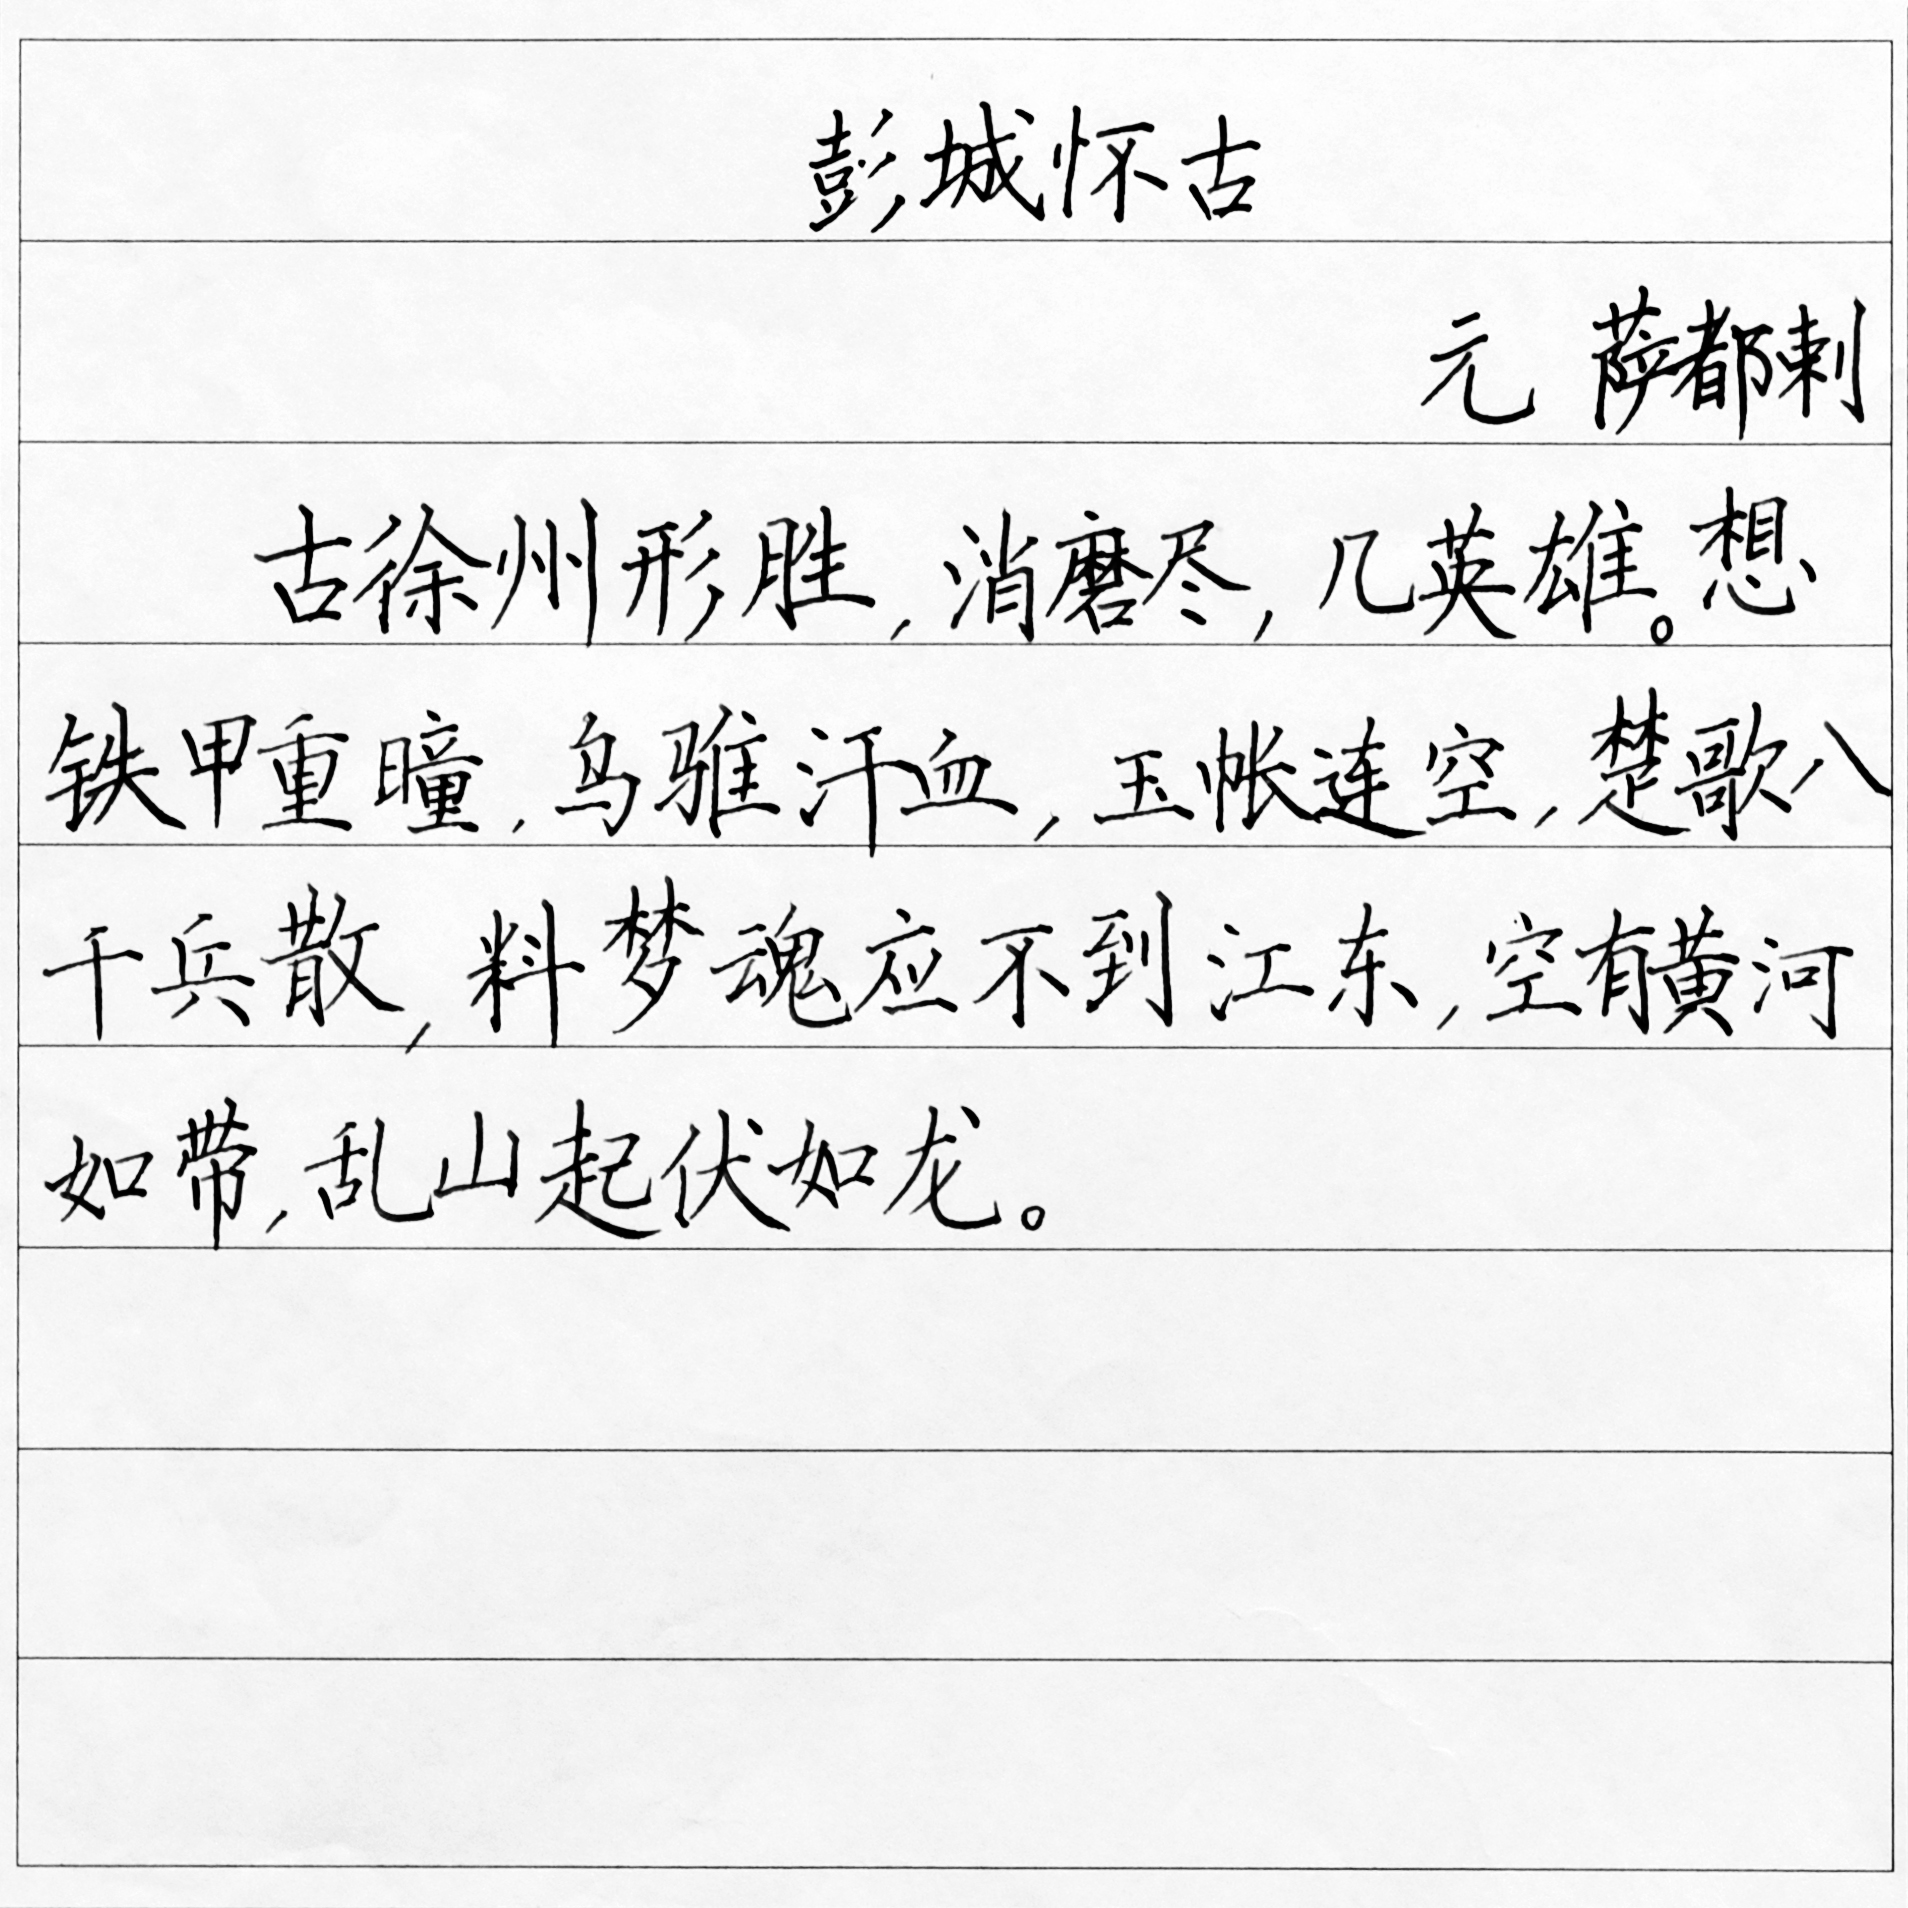 彭城怀古
元 萨都剌
古徐州形胜,消磨尽,几英雄。想
铁甲重瞳,乌骓汗血,玉帐连空,楚歌八
千兵散,料梦魂应不到江东,空有黄河
如带,乱山起伏如龙。